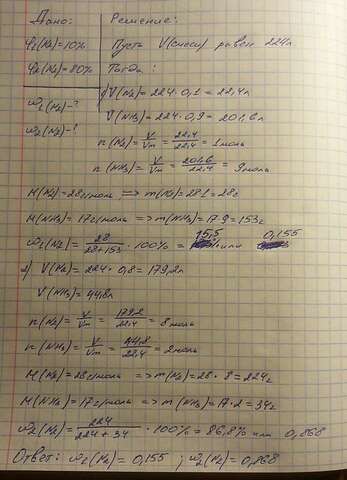 Дано: Решение:
φ₁(N₂)=10% Пусть V(смеси) равен 224л
φ₂(N₂)=80% Тогда:
ω₁(N₂)-? 1) V(N₂)=224·0,1=22,4л
ω₂(N₂)-? V(NH₃)=224·0,9=201,6л
n(N₂)=V/Vm=22,4/22,4=1моль
n(NH₃)=V/Vm=201,6/22,4=9моль
M(N₂)=28г/моль => m(N₂)=28·1=28г
M(NH₃)=17г/моль => m(NH₃)=17·9=153г
ω₁(N₂)=28/28+153·100%=15,5 или 0,155
2) V(N₂)=224·0,8=179,2л
V(NH₃)=44,8л
n(N₂)=V/Vm=179,2/22,4=8моль
n(NH₃)=V/Vm=44,8/22,4=2моль
M(N₂)=28г/моль => m(N₂)=28·8=224г
M(NH₃)=17г/моль => m(NH₃)=17·2=34г
ω₂(N₂)=224/224+34·100%=86,8% или 0,868
Ответ: ω₁(N₂)=0,155; ω₂(N₂)=0,868